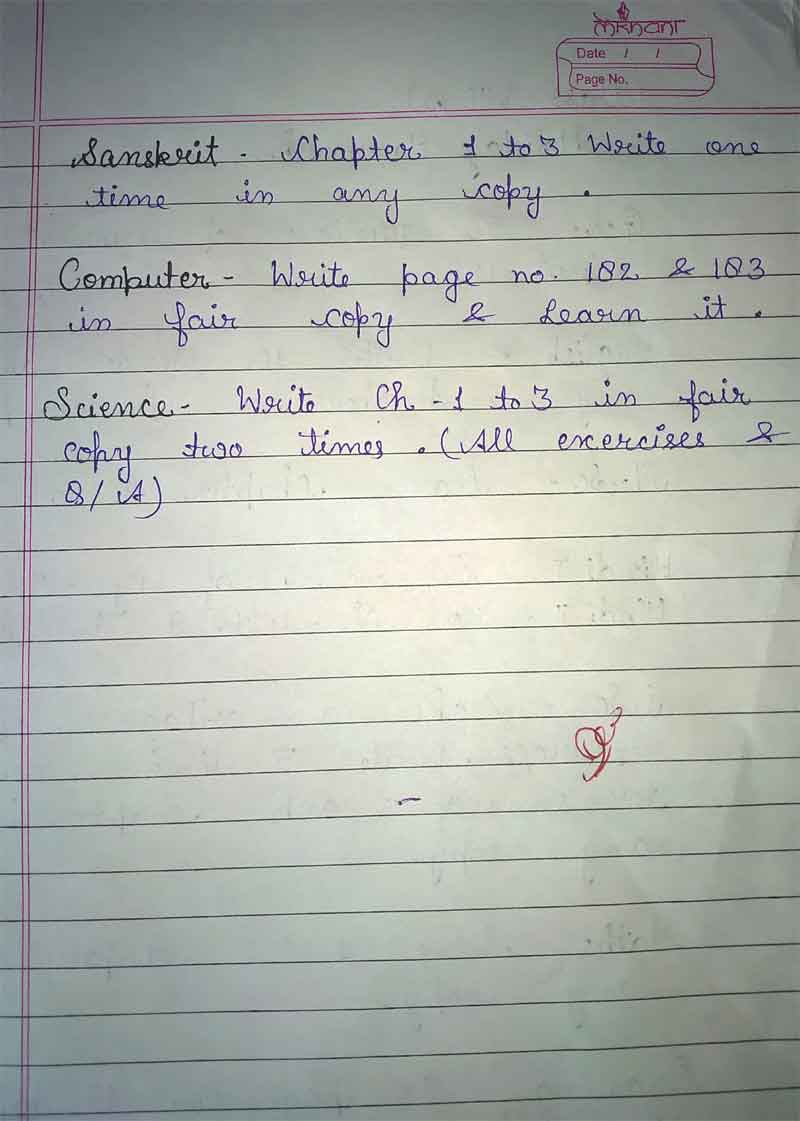 Lekhani
Date / /
Page No.
Sanskrit - Chapter 1 to 3 Write one
time in any copy .
Computer - Write page no. 182 & 183
in fair copy & Learn it .
Science - Write Ch - 1 to 3 in fair
copy two times . (All exercises &
Q/A)